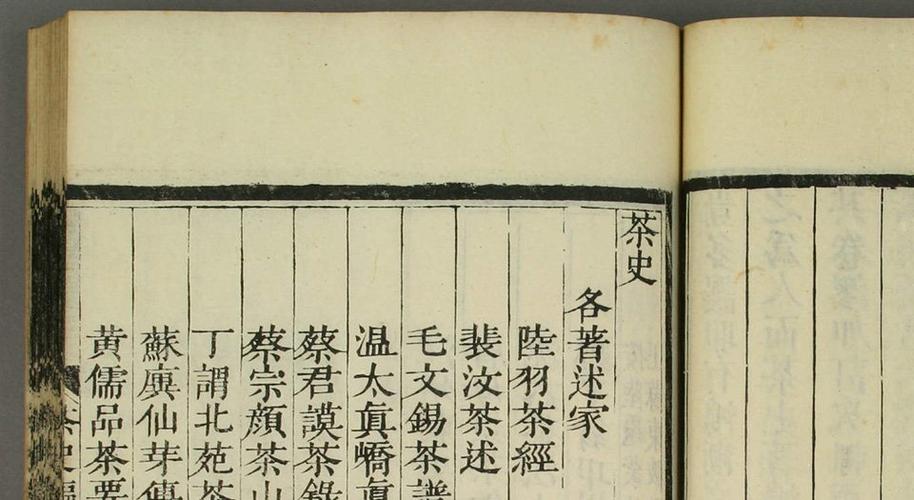 茶史
各著述家
陸羽茶經
裴汶茶述
毛文錫茶譜
温太眞嶠眞
蔡君謨茶錄
蔡宗顔茶山
丁謂北苑茶
蘇廙仙芽傳
黄儒品茶要
茶史